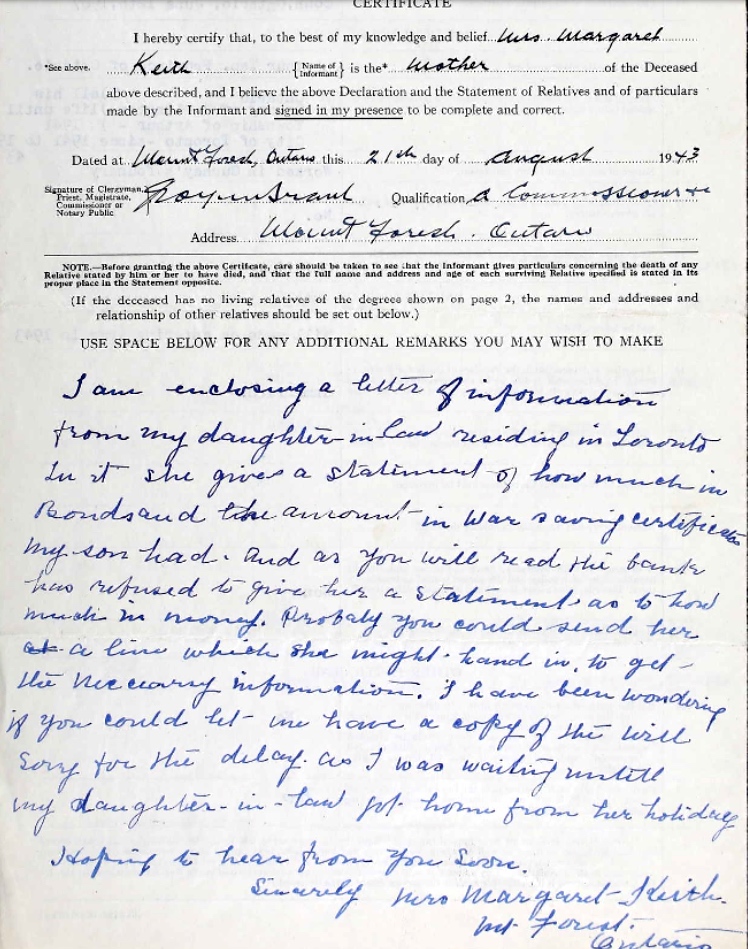 CERTIFICATE
I hereby certify that, to the best of my knowledge and belief Mrs. Margaret
*See above. Keith {Name of Informant} is the* Mother of the Deceased
above described, and I believe the above Declaration and the Statement of Relatives and of particulars
made by the Informant and signed in my presence to be complete and correct.
Dated at Mount Forest, Ontario this 21st day of August 1943
Signature of Clergyman, Priest, Magistrate, Commissioner or Notary Public Qualification A Commissioner etc
Address Mount Forest. Ontario
NOTE.—Before granting the above Certificate, care should be taken to see that the Informant gives particulars concerning the death of any
Relative stated by him or her to have died, and that the full name and address and age of each surviving Relative specified is stated in its
proper place in the Statement opposite.
(If the deceased has no living relatives of the degrees shown on page 2, the names and addresses and
relationship of other relatives should be set out below.)
USE SPACE BELOW FOR ANY ADDITIONAL REMARKS YOU MAY WISH TO MAKE
I am enclosing a letter of information
from my daughter-in-law residing in Toronto
In it she gives a statement of how much in
Bonds and the amount in War saving certificates
my son had. And as you will read the bank
has refused to give her a statement as to how
much in money. Probaly you could send her
a line which she might hand in, to get
the neccearry information. I have been wondering
if you could let me have a copy of the will
Sorry for the delay. as I was waiting untill
my daughter-in-law got home from her holidays
Hoping to hear from you soon.
Sincerely Mrs Margaret Keith.
Mt Forest.
Ontario